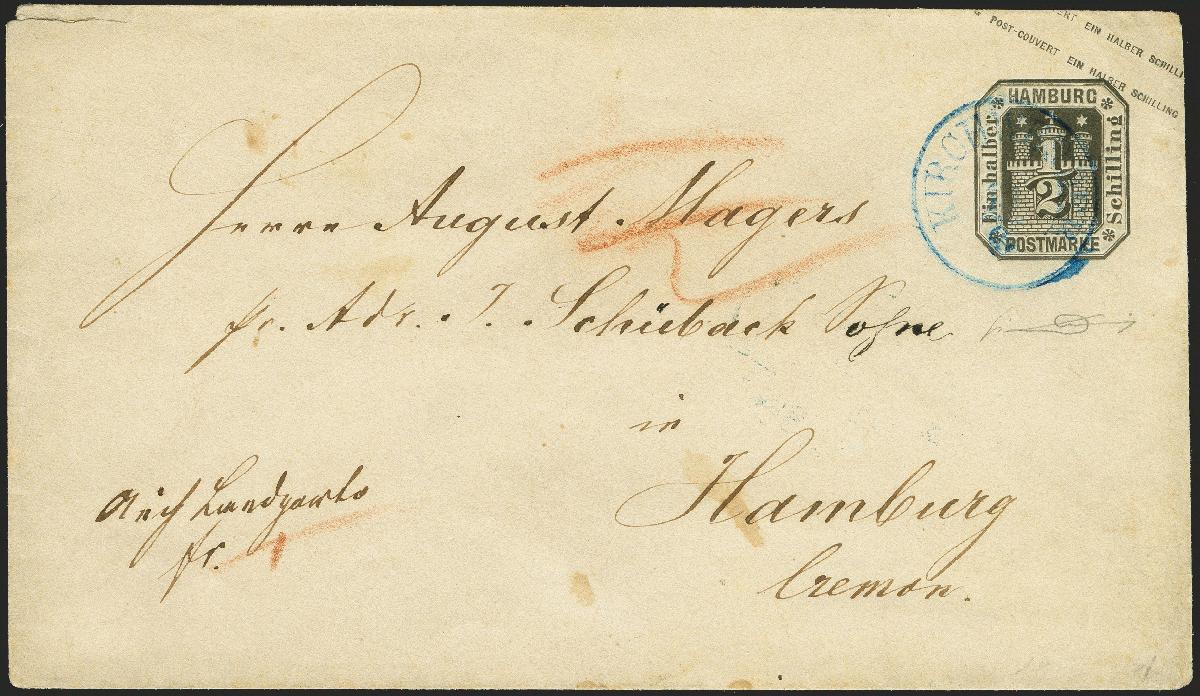 POST-COUVERT EIN HALBER SCHILLING
EIN HALBER SCHILLI
HAMBURG
Einhalber
Schilling
1/2
POSTMARKE
KIRCH
Herrn August Magers
pr. Adr. J. Schüback Sohne
in
Hamburg
Cremon.
Auch Landporto
fr. 1